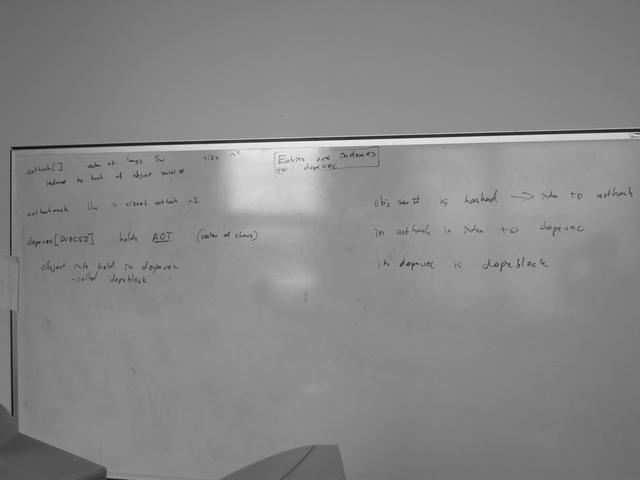 aothash[] vector of longs Sw size n²
indexed by hash of object serial #
Entries are indexes
to dopevec
aothashmask Uw = sizeof aothash -1
dopevec[DVECSZ] holds AOT (vector of chars)
object info held in dopevec
- called dopeblock
obj ser # is hashed → index to aothash
in aothash is index to dopevec
in dopevec is dopeblock